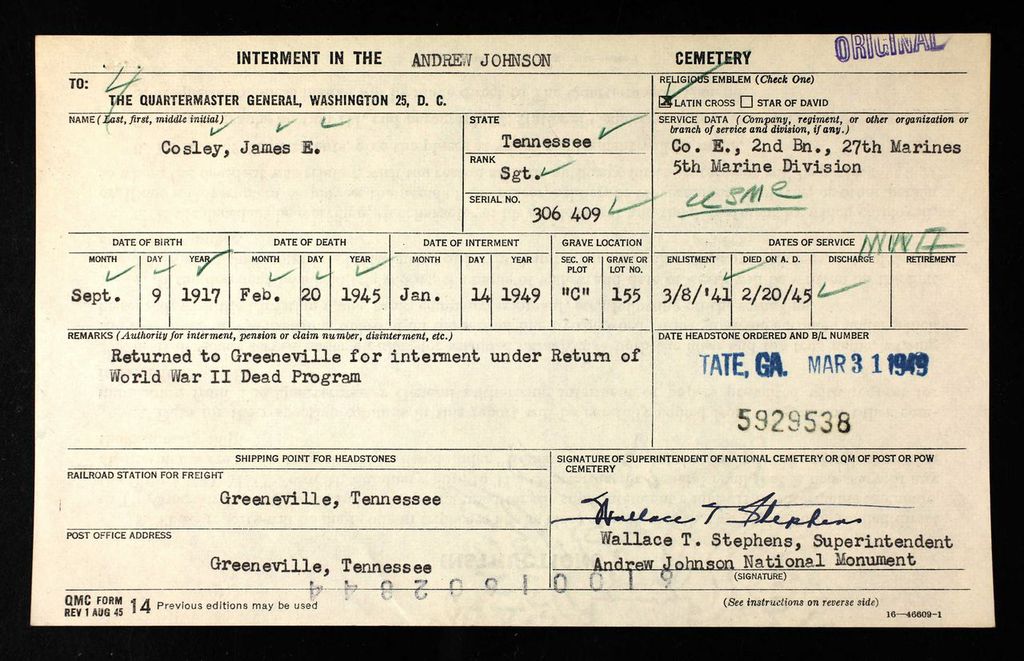 ORIGINAL
INTERMENT IN THE ANDREW JOHNSON CEMETERY
TO: 4
THE QUARTERMASTER GENERAL, WASHINGTON 25, D. C.
RELIGIOUS EMBLEM (Check One)
☒ LATIN CROSS ☐ STAR OF DAVID
NAME (Last, first, middle initial)
Cosley, James E.
STATE
Tennessee
RANK
Sgt.
SERIAL NO.
306 409
SERVICE DATA (Company, regiment, or other organization or
branch of service and division, if any.)
Co. E., 2nd Bn., 27th Marines
5th Marine Division
USMC
DATE OF BIRTH DATE OF DEATH DATE OF INTERMENT GRAVE LOCATION DATES OF SERVICE WWII
MONTH DAY YEAR MONTH DAY YEAR MONTH DAY YEAR SEC. OR PLOT GRAVE OR LOT NO. ENLISTMENT DIED ON A. D. DISCHARGE RETIREMENT
Sept. 9 1917 Feb. 20 1945 Jan. 14 1949 "C" 155 3/8/'41 2/20/45
REMARKS (Authority for interment, pension or claim number, disinterment, etc.)
Returned to Greeneville for interment under Return of
World War II Dead Program
DATE HEADSTONE ORDERED AND B/L NUMBER
TATE, GA. MAR 31 1949
5929538
SHIPPING POINT FOR HEADSTONES
RAILROAD STATION FOR FREIGHT
Greeneville, Tennessee
POST OFFICE ADDRESS
Greeneville, Tennessee
SIGNATURE OF SUPERINTENDENT OF NATIONAL CEMETERY OR QM OF POST OR POW
CEMETERY
Wallace T Stephens
Wallace T. Stephens, Superintendent
Andrew Johnson National Monument
(SIGNATURE)
QMC FORM
REV 1 AUG 45 14 Previous editions may be used
(See instructions on reverse side)
16—46609-1